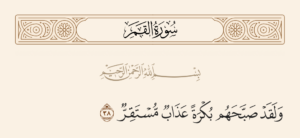 سُورَةُ القَمَرِ
بِسْمِ اللَّهِ الرَّحْمَٰنِ الرَّحِيمِ
وَلَقَدْ صَبَّحَهُم بُكْرَةً عَذَابٌ مُّسْتَقِرٌّ ٣٨